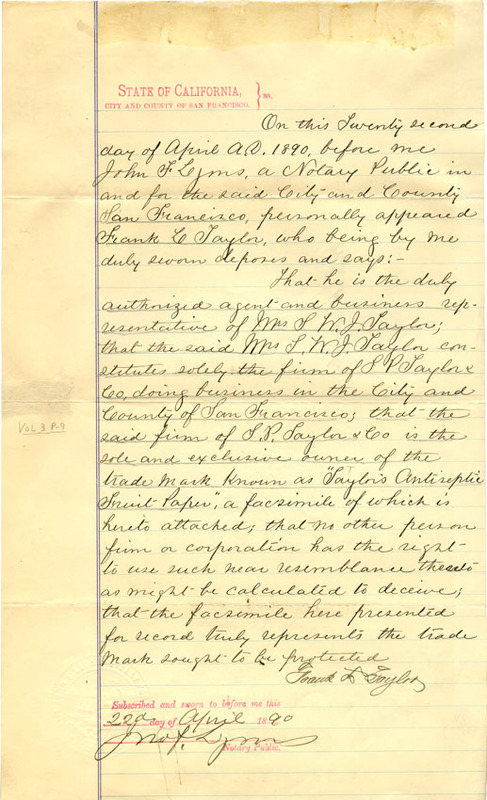 STATE OF CALIFORNIA,
CITY AND COUNTY OF SAN FRANCISCO. } ss.
On this Twenty second
day of April A.D. 1890, before me
John F Lyons, a Notary Public in
and for the said City and County
San Francisco, personally appeared
Frank L Taylor, who being by me
duly sworn deposes and says:-
That he is the duly
authorized agent and business rep-
resentative of Mrs S. W. J. Taylor;
that the said Mrs S. W. J. Taylor con-
stitutes solely the firm of S P Taylor &
Co, doing business in the City and
County of San Francisco; that the
said firm of S. P. Taylor & Co is the
sole and exclusive owner of the
trade mark known as "Taylor's Antiseptic
Fruit Paper", a facsimile of which is
hereto attached; that no other person
firm or corporation has the right
to use such near resemblance thereto
as might be calculated to deceive;
that the facsimile here presented
for record truly represents the trade
mark sought to be protected
Frank L Taylor
Subscribed and sworn to before me this
22d day of April 1890
Jno F. Lyons
Notary Public.
VOL 3 P-9